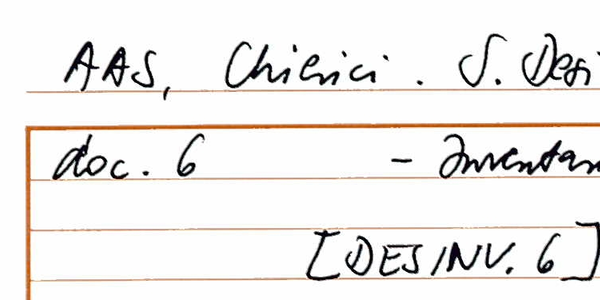 AAS, Chierici. S. Desi
doc. 6 - Inventar
[DESINV. 6]